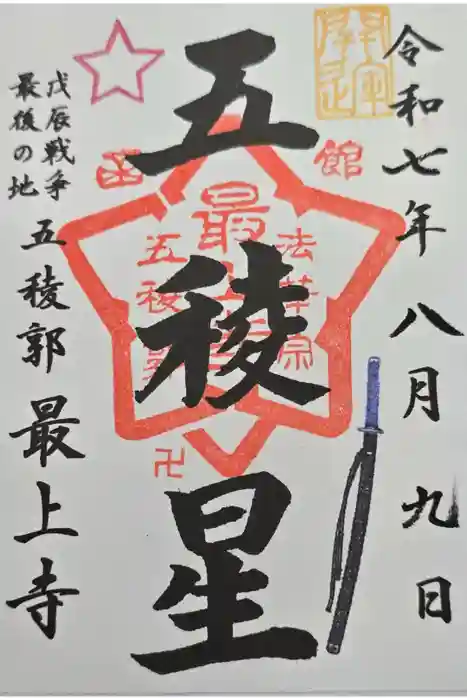 令和七年八月九日
五稜星
函館
法華宗
五稜郭
卍
戊辰戦争
最後の地
五稜郭 最上寺